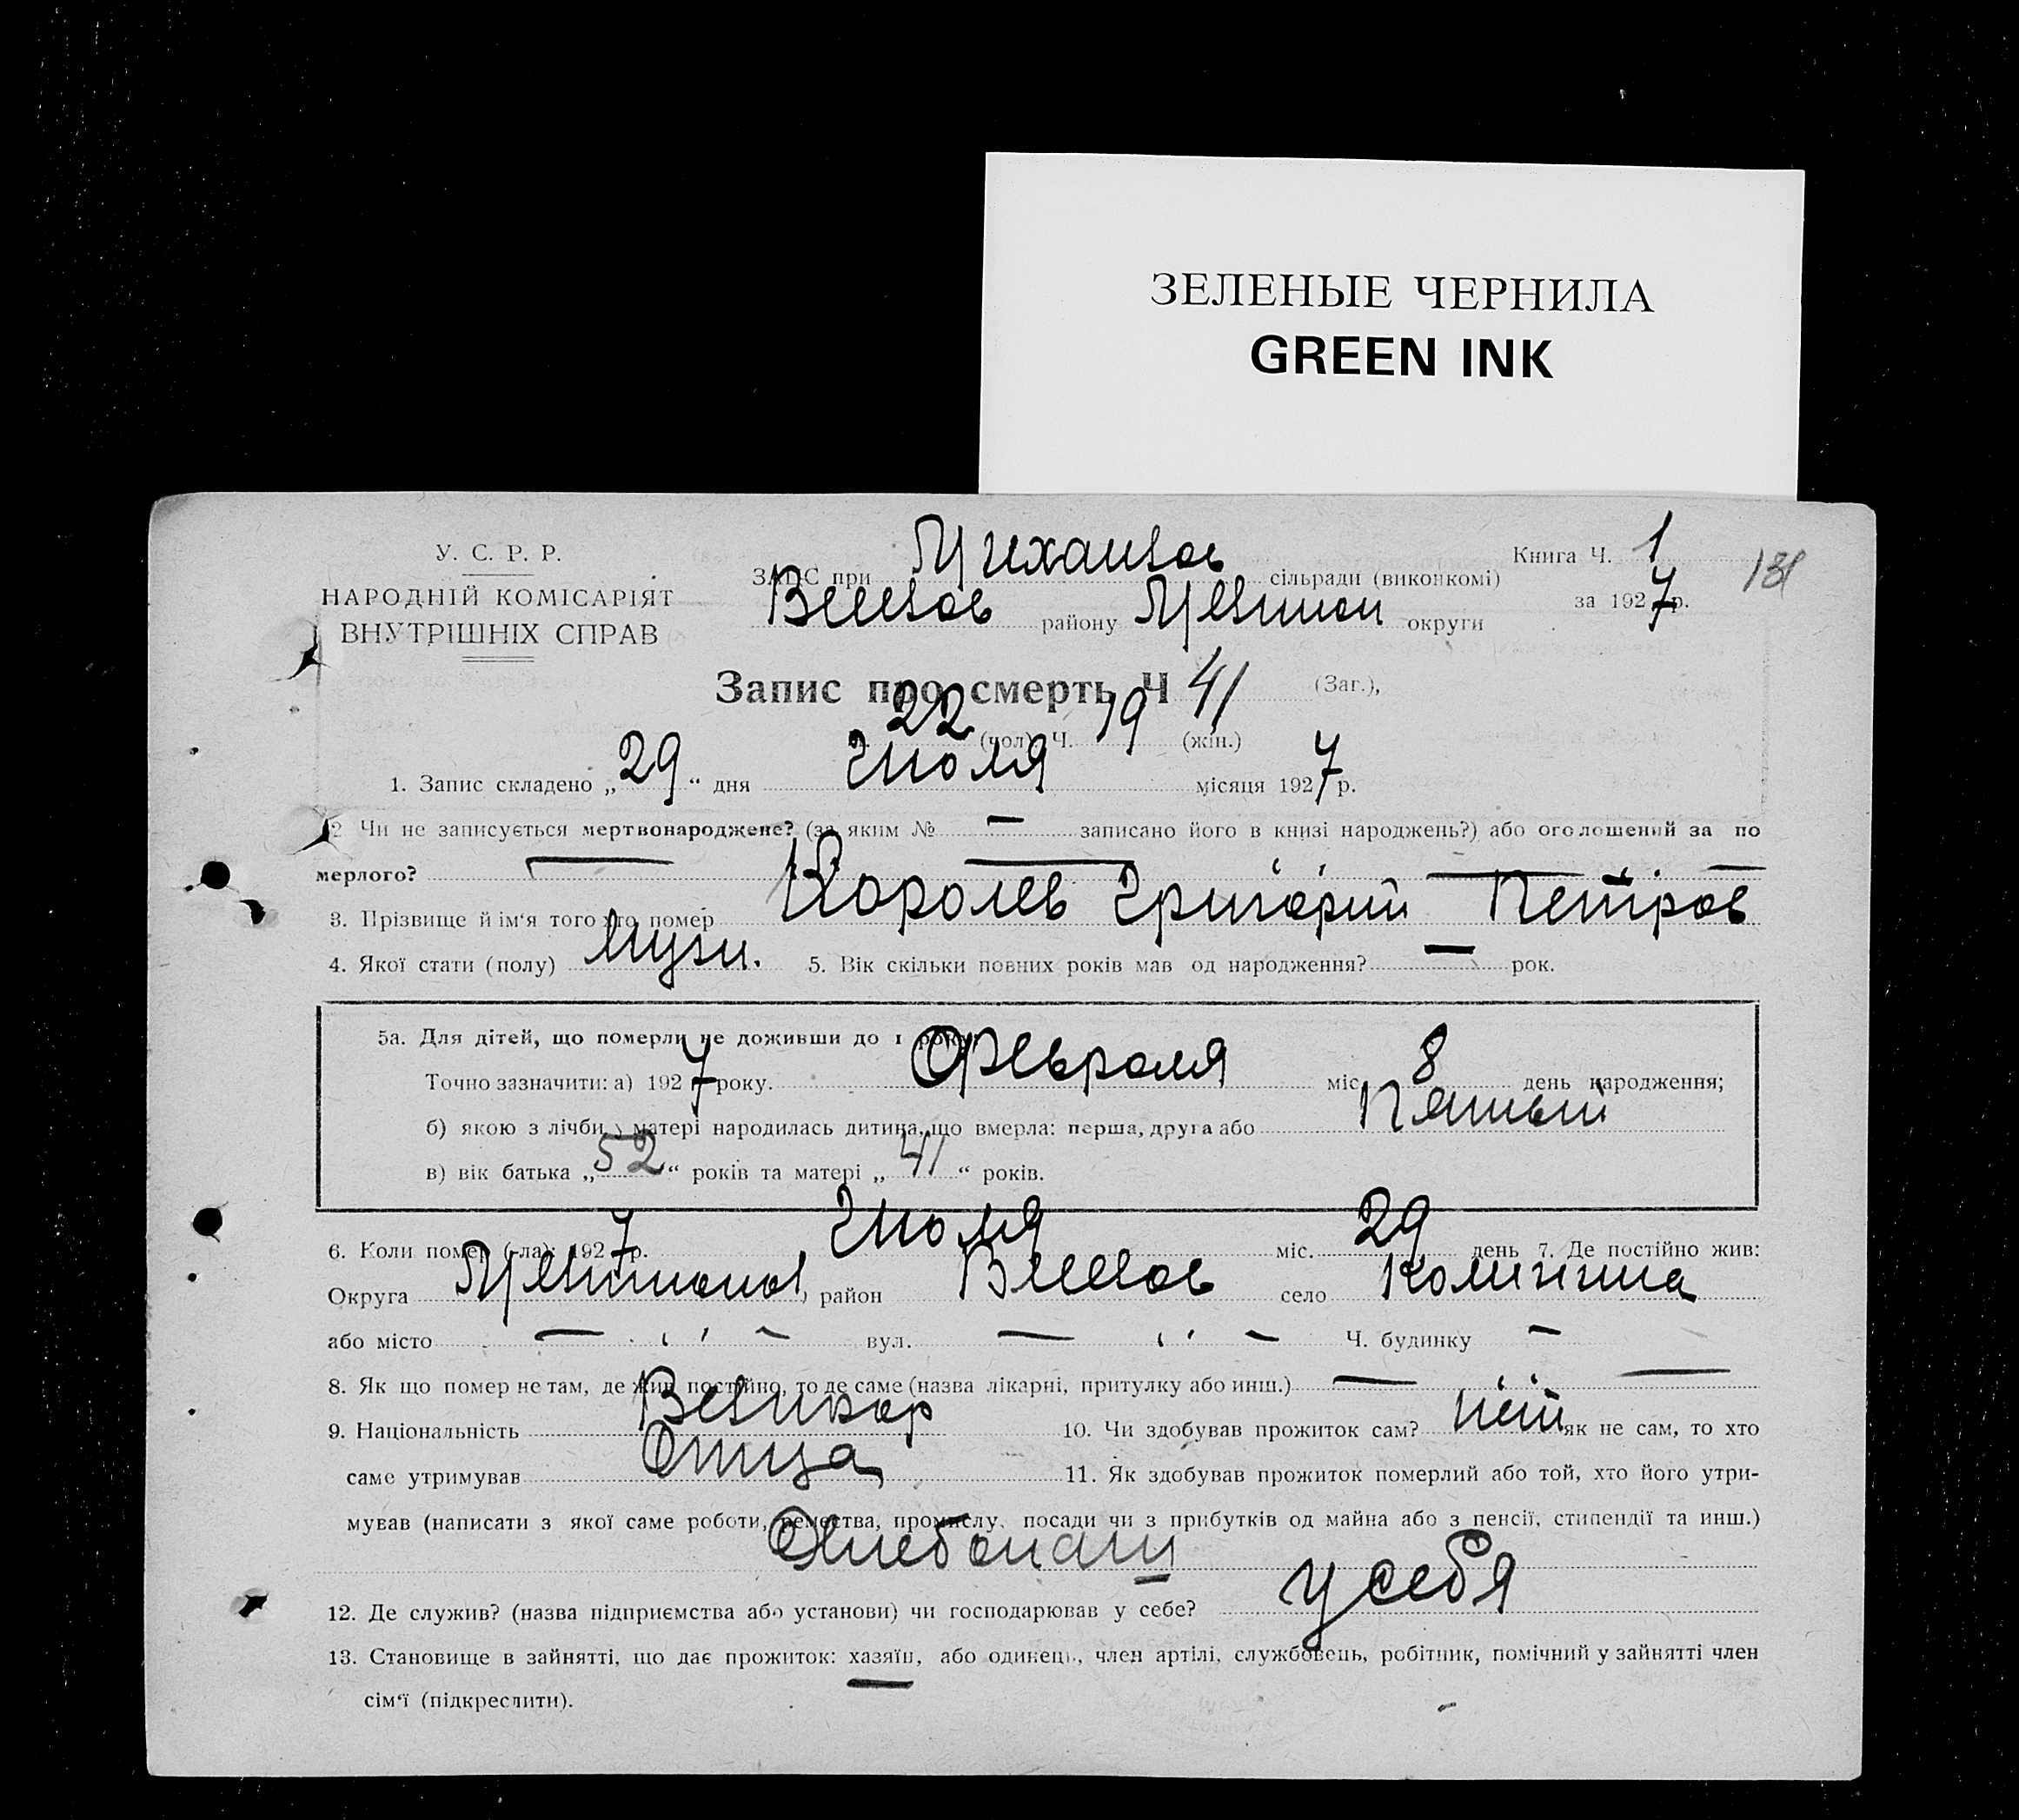 ЗЕЛЕНЫЕ ЧЕРНИЛА
GREEN INK
У. С. Р. Р.
НАРОДНІЙ КОМІСАРІЯТ
ВНУТРІШНІХ СПРАВ
Книга Ч. 1
131
за 1927 р.
ЗАПИС при Михайлов сільради (виконкомі)
Веселов району Мелитоп округи
Запис про смерть Ч 41 (Заг.),
22 (чол) Ч. 19 (жін.)
1. Запис складено „29“ дня Июля місяця 1927 р.
2 Чи не записується мертвонароджене? (за яким № — записано його в книзі народжень?) або оголошений за по
мерлого? —
3. Прізвище й ім'я того хто помер Королев Григорий Петров
4. Якої стати (полу) Мужи. 5. Вік скільки повних років мав од народження? — рок.
5а. Для дітей, що померли не доживши до 1 року:
Точно зазначити: а) 1927 року. Февраля міс 8 день народження;
б) якою з лічби у матері народилась дитина, що вмерла: перша, друга або Пятый
в) вік батька „52“ років та матері „41“ років.
6. Коли помер (-ла): 1927 р. Июля міс. 29 день 7. Де постійно жив:
Округа район Веселов село
або місто — вул. — Ч. будинку —
8. Як що помер не там, де жив постійно, то де саме (назва лікарні, притулку або инш.) —
9. Національність Великор 10. Чи здобував прожиток сам? нет як не сам, то хто
саме утримував Отца 11. Як здобував прожиток померлий або той, хто його утри-
мував (написати з якої саме роботи, ремества, промислу, посади чи з прибутків од майна або з пенсії, стипендії та инш.)
Хлебопаш
12. Де служив? (назва підприємства або установи) чи господарював у себе? у себя
13. Становище в зайнятті, що дає прожиток: хазяїн, або одинець, член артілі, службовець, робітник, помічний у зайнятті член
сім'ї (підкреслити).